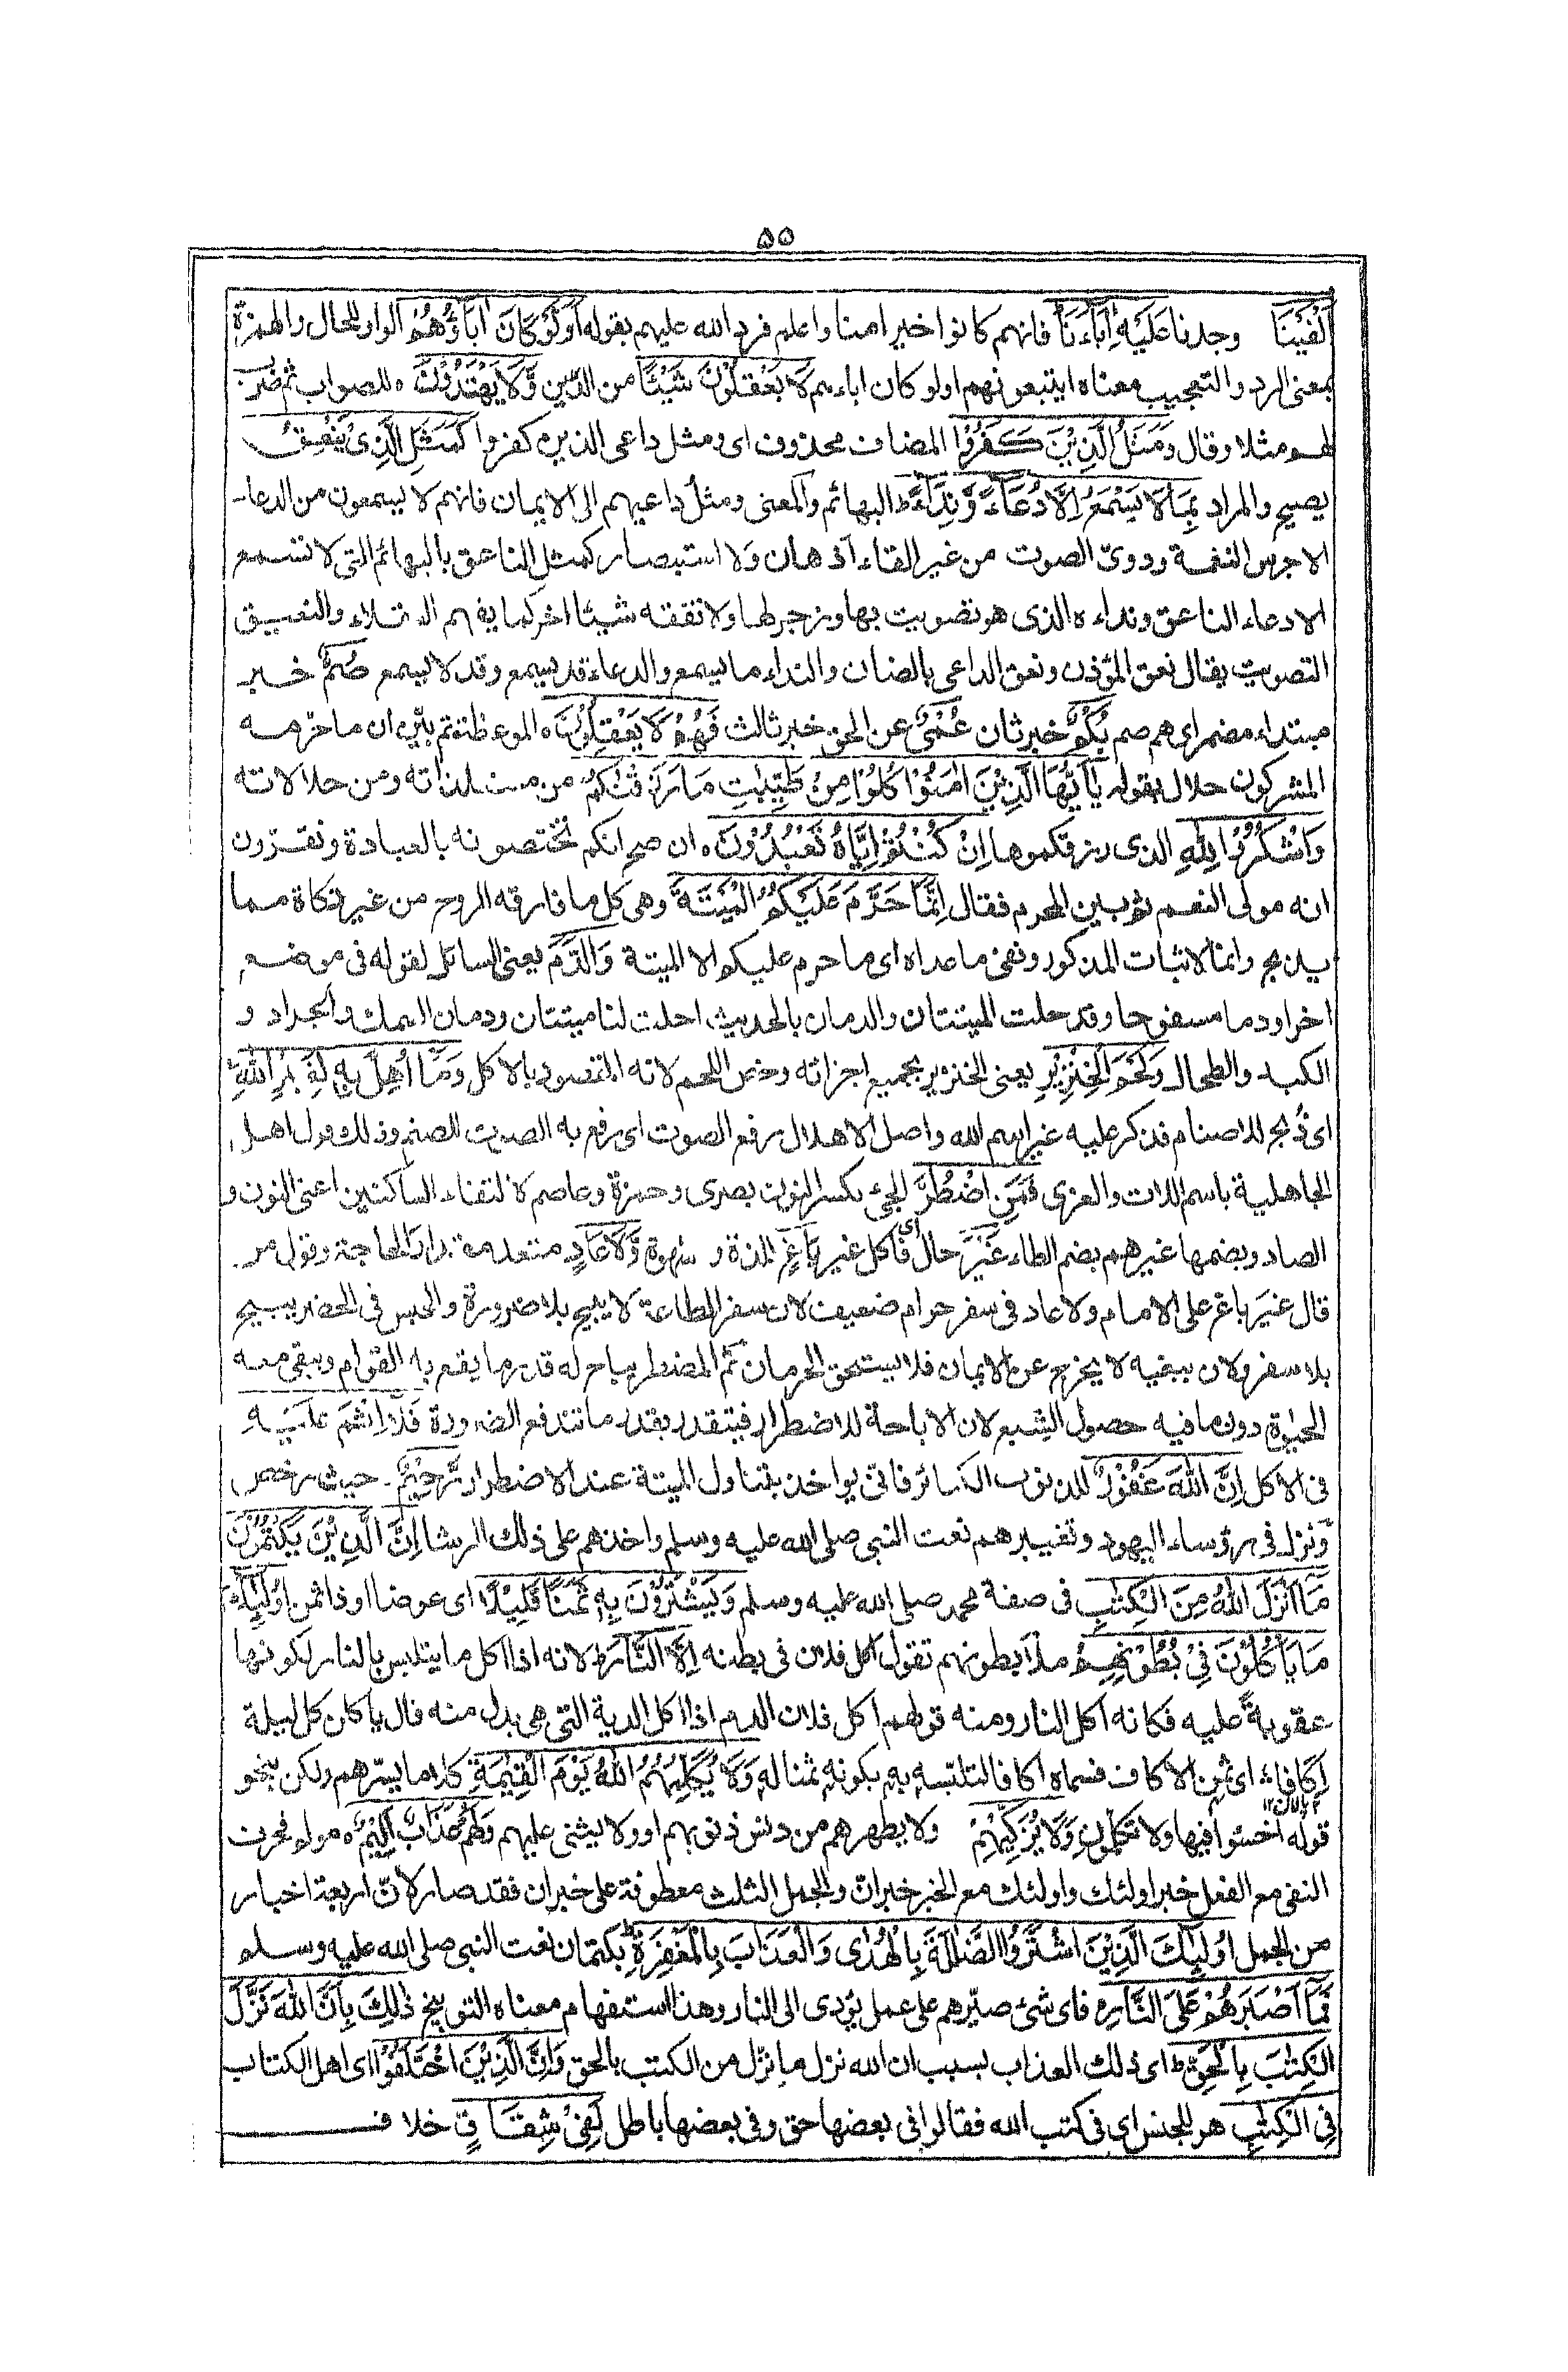 ۵۵
اَلْفَيْنَا وجدنا عَلَيْهِ اٰبَاءَنَا فانهم كانوا خيرا منا واعلم فرد الله عليهم بقوله اَوَلَوْ كَانَ اٰبَاؤُهُمْ الواو للحال والهمزة
بمعنى الرد والتعجيب معناه ايتبعونهم اولو كان اباءهم لَا يَعْقِلُوْنَ شَيْئًا من الدّين وَّلَا يَهْتَدُوْنَ ه للصواب ثم ضرب
لهم مثلا وقال وَمَثَلُ الَّذِيْنَ كَفَرُوْا المضاف محذوف اى ومثل داعى الذين كفروا كَمَثَلِ الَّذِىْ يَنْعِقُ
يصيح والمراد بِمَا لَا يَسْمَعُ اِلَّا دُعَاءً وَّنِدَاءً ط البهائم والمعنى ومثل داعيهم الى الايمان فانهم لا يسمعون من الدعاء
الا جرس النغمة ودوىّ الصوت من غير القاء اذهان ولا استبصار كمثل الناعق بالبهائم التى لا تسمع
الا دعاء الناعق ونداءه الذى هو تصويت بها وزجر لها ولا تفقه شيئا اخر كما يفهم العقلاء والنعيق
التصويت يقال نعق المؤذن ونعق الداعى بالضان والنداء ما يسمع والدعاء قد يسمع وقد لا يسمع صُمٌّ خبر
مبتداء مضمر اى هم صم بُكْمٌ خبر ثان عُمْىٌ عن الحق خبر ثالث فَهُمْ لَا يَعْقِلُوْنَ ه الموعظة ثم بيّن ان ما حرّمه
المشركون حلال بقوله يٰاَيُّهَا الَّذِيْنَ اٰمَنُوْا كُلُوْا مِنْ طَيِّبٰتِ مَا رَزَقْنٰكُمْ من مستلذاته ومن حلالاته
وَاشْكُرُوْا لِلّٰهِ الذى رزقكموها اِنْ كُنْتُمْ اِيَّاهُ تَعْبُدُوْنَ ه ان صح انكم تختصونه بالعبادة وتقرّون
انه مولى النعم ثم بين المحرم فقال اِنَّمَا حَرَّمَ عَلَيْكُمُ الْمَيْتَةَ وهى كل ما فارقه الروح من غير ذكاة مما
يذبح وانما لاثبات المذكور ونفى ماعداه اى ما حرم عليكم الا الميتة وَالدَّمَ يعنى السائل لقوله فى موضع
اخر او دما مسفوحا وقد حلت الميتتان والدمان بالحديث احلت لنا ميتتان ودمان السمك والجراد و
الكبد والطحال وَلَحْمَ الْخِنْزِيْرِ يعنى الخنزير بجميع اجزائه وخص اللحم لانه المقصود بالاكل وَمَا اُهِلَّ بِهٖ لِغَيْرِ اللّٰهِ
اى ذُبح للاصنام فذكر عليه غير اسم الله واصل الاهلال رفع الصوت اى رفع به الصوت للصنم وذلك قول اهل
الجاهلية باسم اللات والعزى فَمَنِ اضْطُرَّ الجئ بكسر النون بصرى وحمزة وعاصم لالتقاء الساكنين اعنى النون و
الصاد وبضمها غيرهم بضم الطاء غَيْرَ حال اى فاكل غير بَاغٍ للذة وشهوة وَّلَا عَادٍ متعد مقدار الحاجة وقول من
قال غير باغ على الامام ولا عاد فى سفر حرام ضعيف لان سفر الطاعة لا يبيح بلا ضرورة والحبس فى الحضر يبيح
بلا سفر ولان ببغيه لا يخرج عن الايمان فلا يستحق الحرمان ثم المضطر يباح له قدر ما يقع به القوام ويبقى معه
الحيوٰة دون ما فيه حصول الشبع لان الاباحة للاضطرار فيتقدر بقدر ما تندفع الضرورة فَلَا اِثْمَ عَلَيْهِ
فى الاكل اِنَّ اللّٰهَ غَفُوْرٌ للذنوب الكبائر فانّى يواخذ بتناول الميتة عند الاضطرار رَّحِيْمٌ حيث رخص
ونزل فى رؤساء اليهود وتغييرهم نعت النبى صلى الله عليه وسلم واخذهم على ذلك الرشا اِنَّ الَّذِيْنَ يَكْتُمُوْنَ
مَا اَنْزَلَ اللّٰهُ مِنَ الْكِتٰبِ فى صفة محمد صلى الله عليه وسلم وَيَشْتَرُوْنَ بِهٖ ثَمَنًا قَلِيْلًا اى عوضا او ذا ثمن اُولٰئِكَ
مَا يَاْكُلُوْنَ فِىْ بُطُوْنِهِمْ ملأ بطونهم تقول اكل فلان فى بطنه اِلَّا النَّارَ ط لانه اذا اكل ما يتلبس بالنار لكونها
عقوبةً عليه فكانه اكل النار ومنه قولهم اكل فلان الدم اذا اكل الدية التى هى بدل منه قال ياكلن كل ليلة
اِكافا اى ثمن الاكاف فسماه اكافا لتلبّسه به بكونه ثمنا له وَلَا يُكَلِّمُهُمُ اللّٰهُ يَوْمَ الْقِيٰمَةِ كلاما يسرّهم ولكن بنحو
قوله اخسئوا فيها ولا تكلمون وَلَا يُزَكِّيْهِمْ ولا يطهرهم من دنس ذنوبهم او ولا يثنى عليهم وَلَهُمْ عَذَابٌ اَلِيْمٌ ه مولم فحرف
النفى مع الفعل خبر اولئك واولئك مع الخبر خبر انّ والجمل الثلث معطوفة على خبر ان فقد صار لانّ اربعة اخبار
من الجمل اُولٰئِكَ الَّذِيْنَ اشْتَرَوُا الضَّلٰلَةَ بِالْهُدٰى وَالْعَذَابَ بِالْمَغْفِرَةِ بكتمان نعت النبى صلى الله عليه وسلم
فَمَا اَصْبَرَهُمْ عَلَى النَّارِ ه فاى شئ صبّرهم على عمل يؤدى الى النار وهذا استفهام معناه التوبيخ ذٰلِكَ بِاَنَّ اللّٰهَ نَزَّلَ
الْكِتٰبَ بِالْحَقِّ ط اى ذلك العذاب بسبب ان الله نزل ما نزّل من الكتب بالحق وَاِنَّ الَّذِيْنَ اخْتَلَفُوْا اى اهل الكتاب
فِى الْكِتٰبِ هو للجنس اى فى كتب الله فقالوا فى بعضها حق وفى بعضها باطل لَفِىْ شِقَاقٍ خلاف